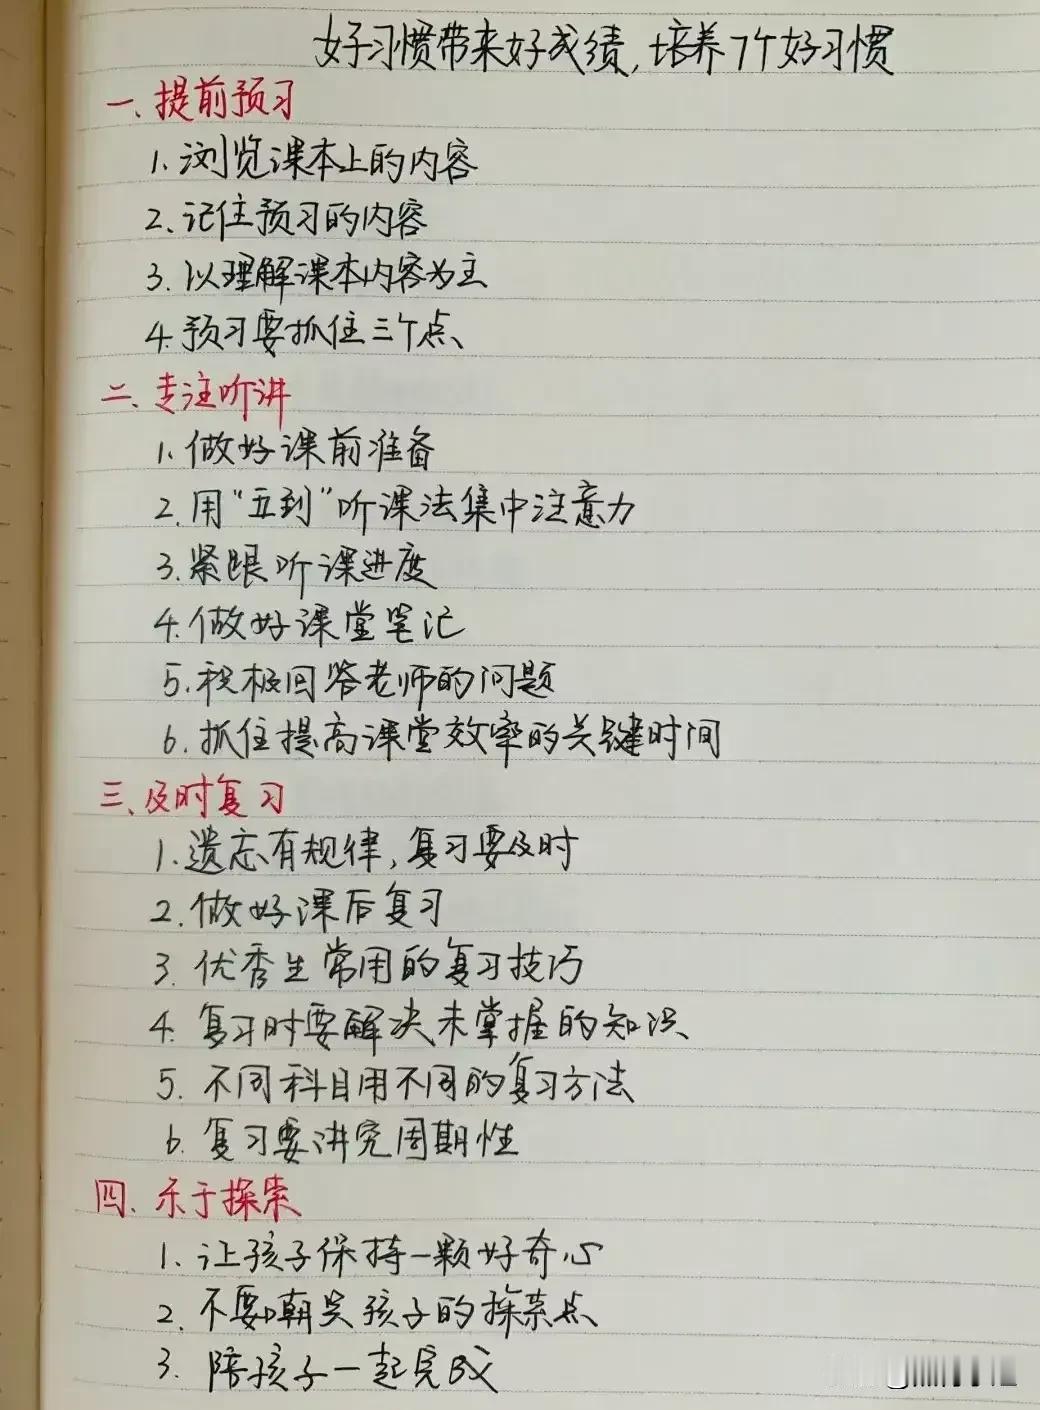 好习惯带来好成绩,培养7个好习惯
一、提前预习
1.浏览课本上的内容
2.记住预习的内容
3.以理解课本内容为主
4.预习要抓住三个点、
二、专注听讲
1.做好课前准备
2.用“五到”听课法集中注意力
3.紧跟听课进度
4.做好课堂笔记
5.积极回答老师的问题
6.抓住提高课堂效率的关键时间
三、及时复习
1.遗忘有规律,复习要及时
2.做好课后复习
3.优秀生常用的复习技巧
4.复习时要解决未掌握的知识
5.不同科目用不同的复习方法
6.复习要讲究周期性
四、乐于探索
1.让孩子保持一颗好奇心
2.不要嘲笑孩子的探索点
3.陪孩子一起完成